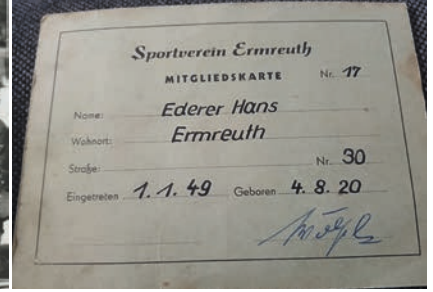 Sportverein Ermreuth
MITGLIEDSKARTE Nr. 17
Name: Ederer Hans
Wohnort: Ermreuth
Straße: Nr. 30
Eingetreten 1.1.49 Geboren 4.8.20